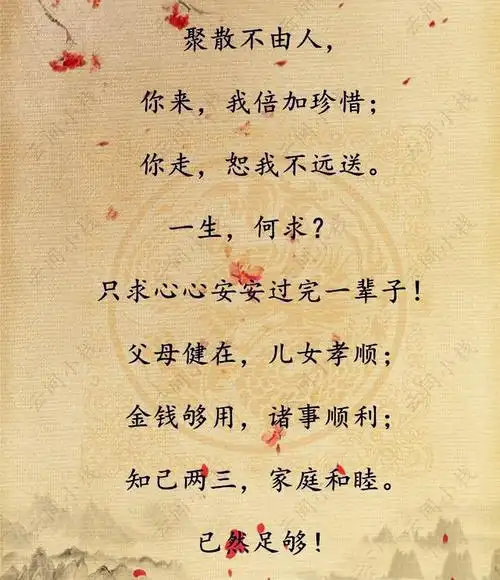 聚散不由人，
你来，我倍加珍惜；
你走，恕我不远送。
一生，何求？
只求心心安安过完一辈子！
父母健在，儿女孝顺；
金钱够用，诸事顺利；
知己两三，家庭和睦。
已然足够！